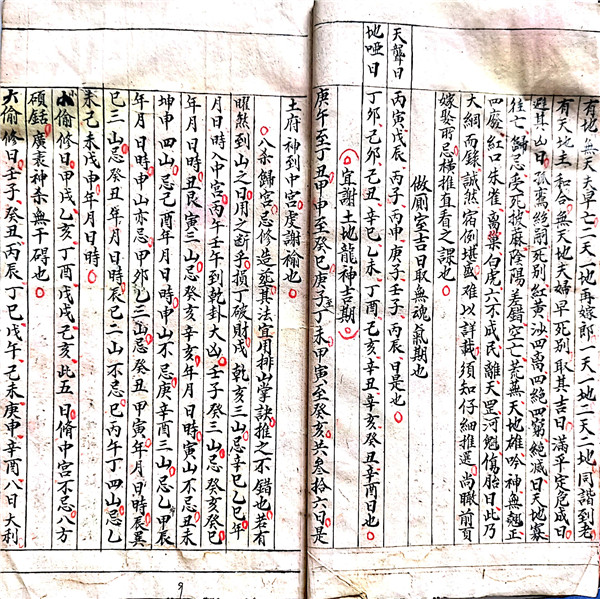 有地無天夫早亡二天一地再嫁郎一天一地二天二地同諧到老
有天地主和合無天地夫婦早死別取其吉日滿平定危成日
避其凶日孤寡絕嗣死別紅黃沙四离四絕四窮絕滅日天地寡
往亡歸忌受死披蔴陰陽差錯空亡荒蕪天地雄吟神無翹正
四廢紅口朱雀白虎六不成民離天罡河魁傷胎日此乃
大綱而錄誠然宻例堪盛难以詳載須知仔細推選尚瞰前頁
嫁娶所忌橫推直看之課也
做厠室吉日取無魂氣期也
天聾日 丙寅戊辰丙子丙申庚子壬子丙辰日是也
地啞日 丁卯己卯己丑辛巳乙未丁酉己亥辛丑辛亥癸丑辛酉日也
宜謝土地龍神吉期
庚午至丁丑甲申至癸巳庚子至丁未甲寅至癸亥共叁拾六日是
土府神到中宮虔謝榆也
八杀歸宮忌修造塟其法宜用排山掌訣推之不錯也若有
曜煞到山之日用之断乎損丁破財戌乾亥三山忌辛巳乙巳年
月日時入中宮丙午壬午到乾卦大凶壬子癸三山忌癸亥癸巳
年月日時丑艮寅三山忌癸亥辛亥年月日時寅山不忌丑未
坤申四山忌己酉年月日時申山不忌庚辛酉三山忌乙甲辰
年月日時申山亦忌甲卯乙三山忌癸丑甲寅年月日時辰巽
巳三山忌癸丑年月日時辰巳二山不忌巳丙午丁四山忌乙
未己未戊申年月日時
偷修日甲戌乙亥丁酉戊戌己亥此五日脩中宮不忌八方
碩銛廣衰神杀無干碍也
六偷修日壬子癸丑丙辰丁巳戊午己未庚申辛酉八日大利
9